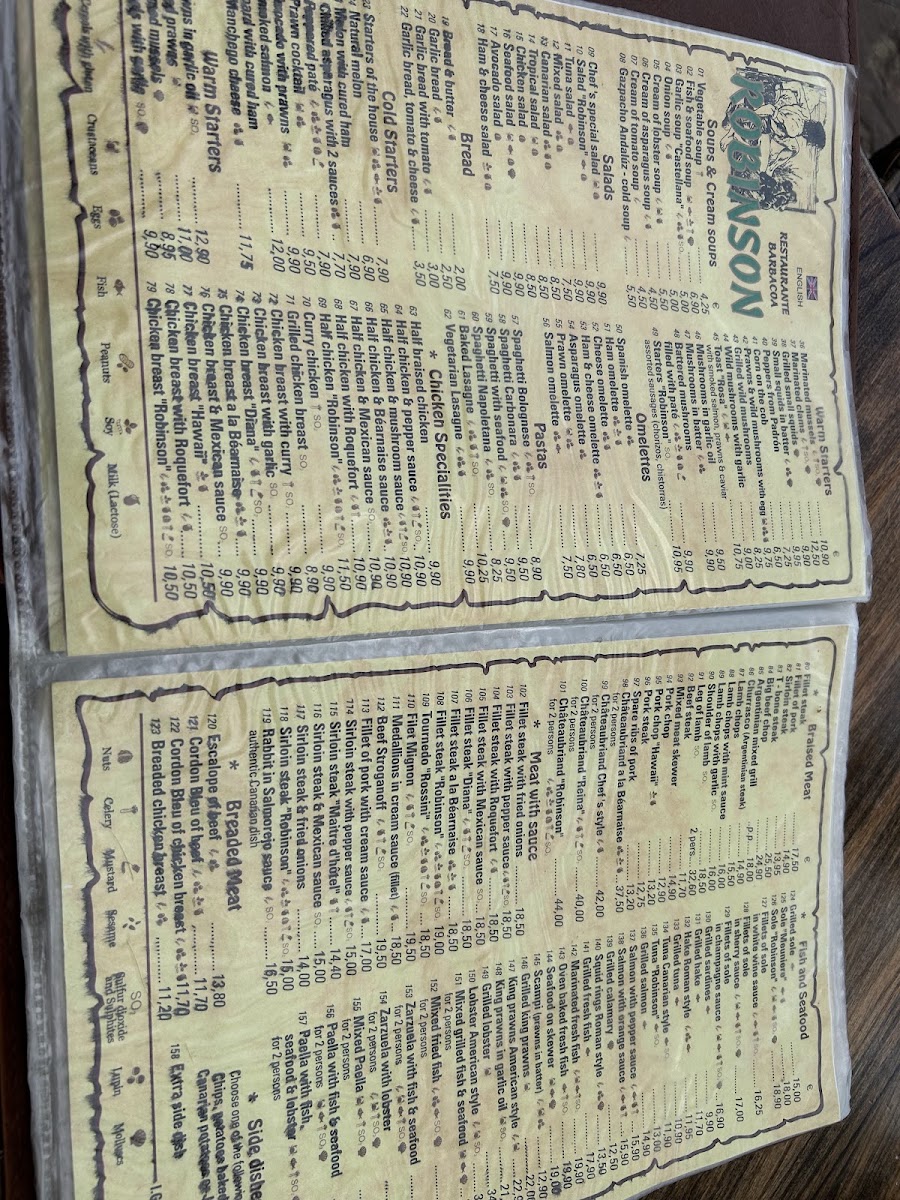 ROBINSON
RESTAURANTE
BARBACOA
ENGLISH
Soups & Cream soups
€
01 Vegetable soup 4,25
02 Fish & seafood soup 6,90
03 Garlic soup "Castellana" SO2 5,00
04 Onion soup 5,00
05 Cream of lobster soup 5,50
06 Cream of asparagus soup 4,50
07 Cream of tomato soup 4,50
08 Gazpacho Andalúz - cold soup 5,50
Salads
09 Chef's special salad 9,90
10 Salad "Robinson" 9,90
11 Tuna salad 7,50
12 Mixed salad 8,50
13 Canarian salad
14 Tropical salad
15 Chicken salad
16 Seafood salad
17 Avocado salad
18 Ham & cheese salad 7,50
Bread
19 Bread & butter 2,00
20 Garlic bread 2,50
21 Garlic bread with tomato 3,00
22 Garlic bread, tomato & cheese 3,50
Cold Starters
23 Starters of the house 7,90
24 Natural melon 6,90
Melon with cured ham 7,90
Chilled asparagus with 2 sauces 7,70
Peppered paté 7,90
Prawn cocktail 9,50
Avocado with prawns 9,90
smoked salmon 12,00
board with cured ham
Manchego cheese 11,75
Warm Starters
12,90
prawns in garlic oil SO2 11,00
8,95
9,90
Crustaceans
Eggs
Fish
Peanuts
Soy
Milk (Lactose)
Warm Starters
€
36 Marinated mussels 10,90
37 Marinated clams 12,50
38 Grilled small squids 9,90
38 Small squids in batter 9,95
39 Small squids in batter 7,25
40 Peppers from Padrón 6,50
41 Corn on the cob
42 Prawns & wild mushrooms with egg
43 Grilled wild mushrooms
44 Wild mushrooms with garlic 10,75
45 Toast "Rosa"
with smoked salmon, prawns & caviar 9,50
46 Mushrooms in garlic oil 9,90
47 Mushrooms in batter
48 Battered mushrooms
filled with paté 9,90
49 Starters "Robinson" SO2 10,95
assorted sausages (chorizos, chistorras)
Omelettes
50 Spanish omelette 7,25
51 Ham omelette 6,50
52 Cheese omelette 6,50
53 Ham & cheese omelette 6,50
54 Asparagus omelette 7,80
55 Prawn omelette
56 Salmon omelette 7,50
Pastas
57 Spaghetti Bolognese 8,90
58 Spaghetti Carbonara 9,50
59 Spaghetti with seafood 9,50
60 Spaghetti Napoletana 8,25
61 Baked Lasagne 10,25
62 Vegetarian Lasagne 9,90
* Chicken Specialities
63 Half braised chicken 9,90
64 Half chicken & pepper sauce 10,90
65 Half chicken & mushroom sauce 10,90
66 Half chicken & Béarnaise sauce 10,90
67 Half chicken & Mexican sauce SO2 10,90
68 Half chicken with Roquefort 10,90
69 Half chicken "Robinson" 11,50
70 Curry chicken SO2 9,90
71 Grilled chicken breast 8,90
72 Chicken breast with curry SO2 9,90
73 Chicken breast with garlic SO2 9,90
74 Chicken breast "Diana" 9,90
75 Chicken breast a la Béarnaise 9,90
76 Chicken breast & Mexican sauce SO2 9,90
77 Chicken breast "Hawaii" 10,50
78 Chicken breast with Roquefort 10,50
79 Chicken breast "Robinson" SO2 10,50
* Braised Meat
80 Fillet steak 17,50
81 Fillet of pork 14,90
82 Sirloin steak 13,95
83 T - bone steak
84 Big beef chop
85 Argentinian mixed grill p.p.
86 Churrasco (Argentinian steak)
87 Lamb chops
88 Lamb chops with mint sauce 15,50
89 Lamb chops with garlic SO2 16,00
90 Shoulder of lamb 16,00
91 Leg of lamb SO2 18,50
92 Beef steak 2 pers. 32,60
93 Mixed meat skower 11,70
94 Pork chop 14,90
95 Pork chop "Hawaii" 12,90
96 Pork steak 13,20
97 Spare ribs of pork 12,75
98 Châteaubriand a la Béarnaise 37,50
for 2 persons
99 Châteaubriand Chef's style 42,00
for 2 persons
100 Châteaubriand "Reina" 40,00
for 2 persons
101 Châteaubriand "Robinson" 44,00
for 2 persons
* Meat with sauce
102 Fillet steak with fried onions 18,50
103 Fillet steak with pepper sauce 18,50
104 Fillet steak with Roquefort 18,50
105 Fillet steak with Mexican sauce SO2 18,50
106 Fillet steak "Diana" 18,50
107 Fillet steak a la Béarnaise 18,50
108 Fillet steak "Robinson" 19,00
109 Tournedo "Rossini" 18,50
110 Filet Mignon 19,50
111 Medallions in cream sauce (fillet) 18,50
112 Beef Stroganoff 19,50
113 Fillet of pork with cream sauce 17,00
114 Sirloin steak with pepper sauce 15,00
115 Sirloin steak "Maitre d'hôtel" 14,40
116 Sirloin steak & Mexican sauce SO2 15,00
117 Sirloin steak & fried onions 14,00
118 Sirloin steak "Robinson" 16,00
119 Rabbit in Salmorejo sauce SO2 16,50
authentic Canadian dish
* Breaded Meat
120 Escalope of beef 13,80
121 Cordon Bleu of beef 11,70
122 Cordon Bleu of chicken breast 11,70
123 Breaded chicken breast 11,20
Nuts
Celery
Mustard
Sesame
Sulfur dioxide
and Sulphites
Lupin
Molluscs
* Fish and Seafood
€
124 Grilled sole 15,00
125 Sole "Meuniere" 18,00
126 Sole "Robinson" 18,90
127 Fillets of sole
in white wine sauce 16,25
128 Fillets of sole
in sherry sauce 17,00
129 Fillets of sole
in champagne sauce 16,90
130 Grilled sardines 9,90
131 Grilled hake 11,70
132 Hake Roman style 11,95
133 Grilled tuna 10,90
134 Tuna Canarian style 11,90
135 Tuna "Robinson" 13,00
136 Grilled salmon 14,90
137 Salmon with pepper sauce 15,90
138 Salmon with orange sauce 15,90
139 Grilled calamary 12,50
140 Squid rings Roman style 13,50
141 Grilled fresh fish 17,90
142 Marinated fresh fish 19,90
143 Oven baked fresh fish 19,90
144 Seafood on skower 19,00
145 Scampi (prawns in batter) 12,90
146 Grilled king prawns
147 King prawns American style
148 King prawns in garlic oil
149 Grilled lobster
150 Lobster American style
151 Mixed grilled fish & seafood
for 2 persons
152 Mixed fried fish
for 2 persons
153 Zarzuela with fish & seafood
for 2 persons
154 Zarzuela with lobster
for 2 persons
155 Mixed Paella
for 2 persons
156 Paella with fish & seafood
for 2 persons
157 Paella with fish,
seafood & lobster
for 2 persons
* Side dishe
Choose one of the following
Chips, potatoes baked
Canarian potatoes
158 Extra side dish